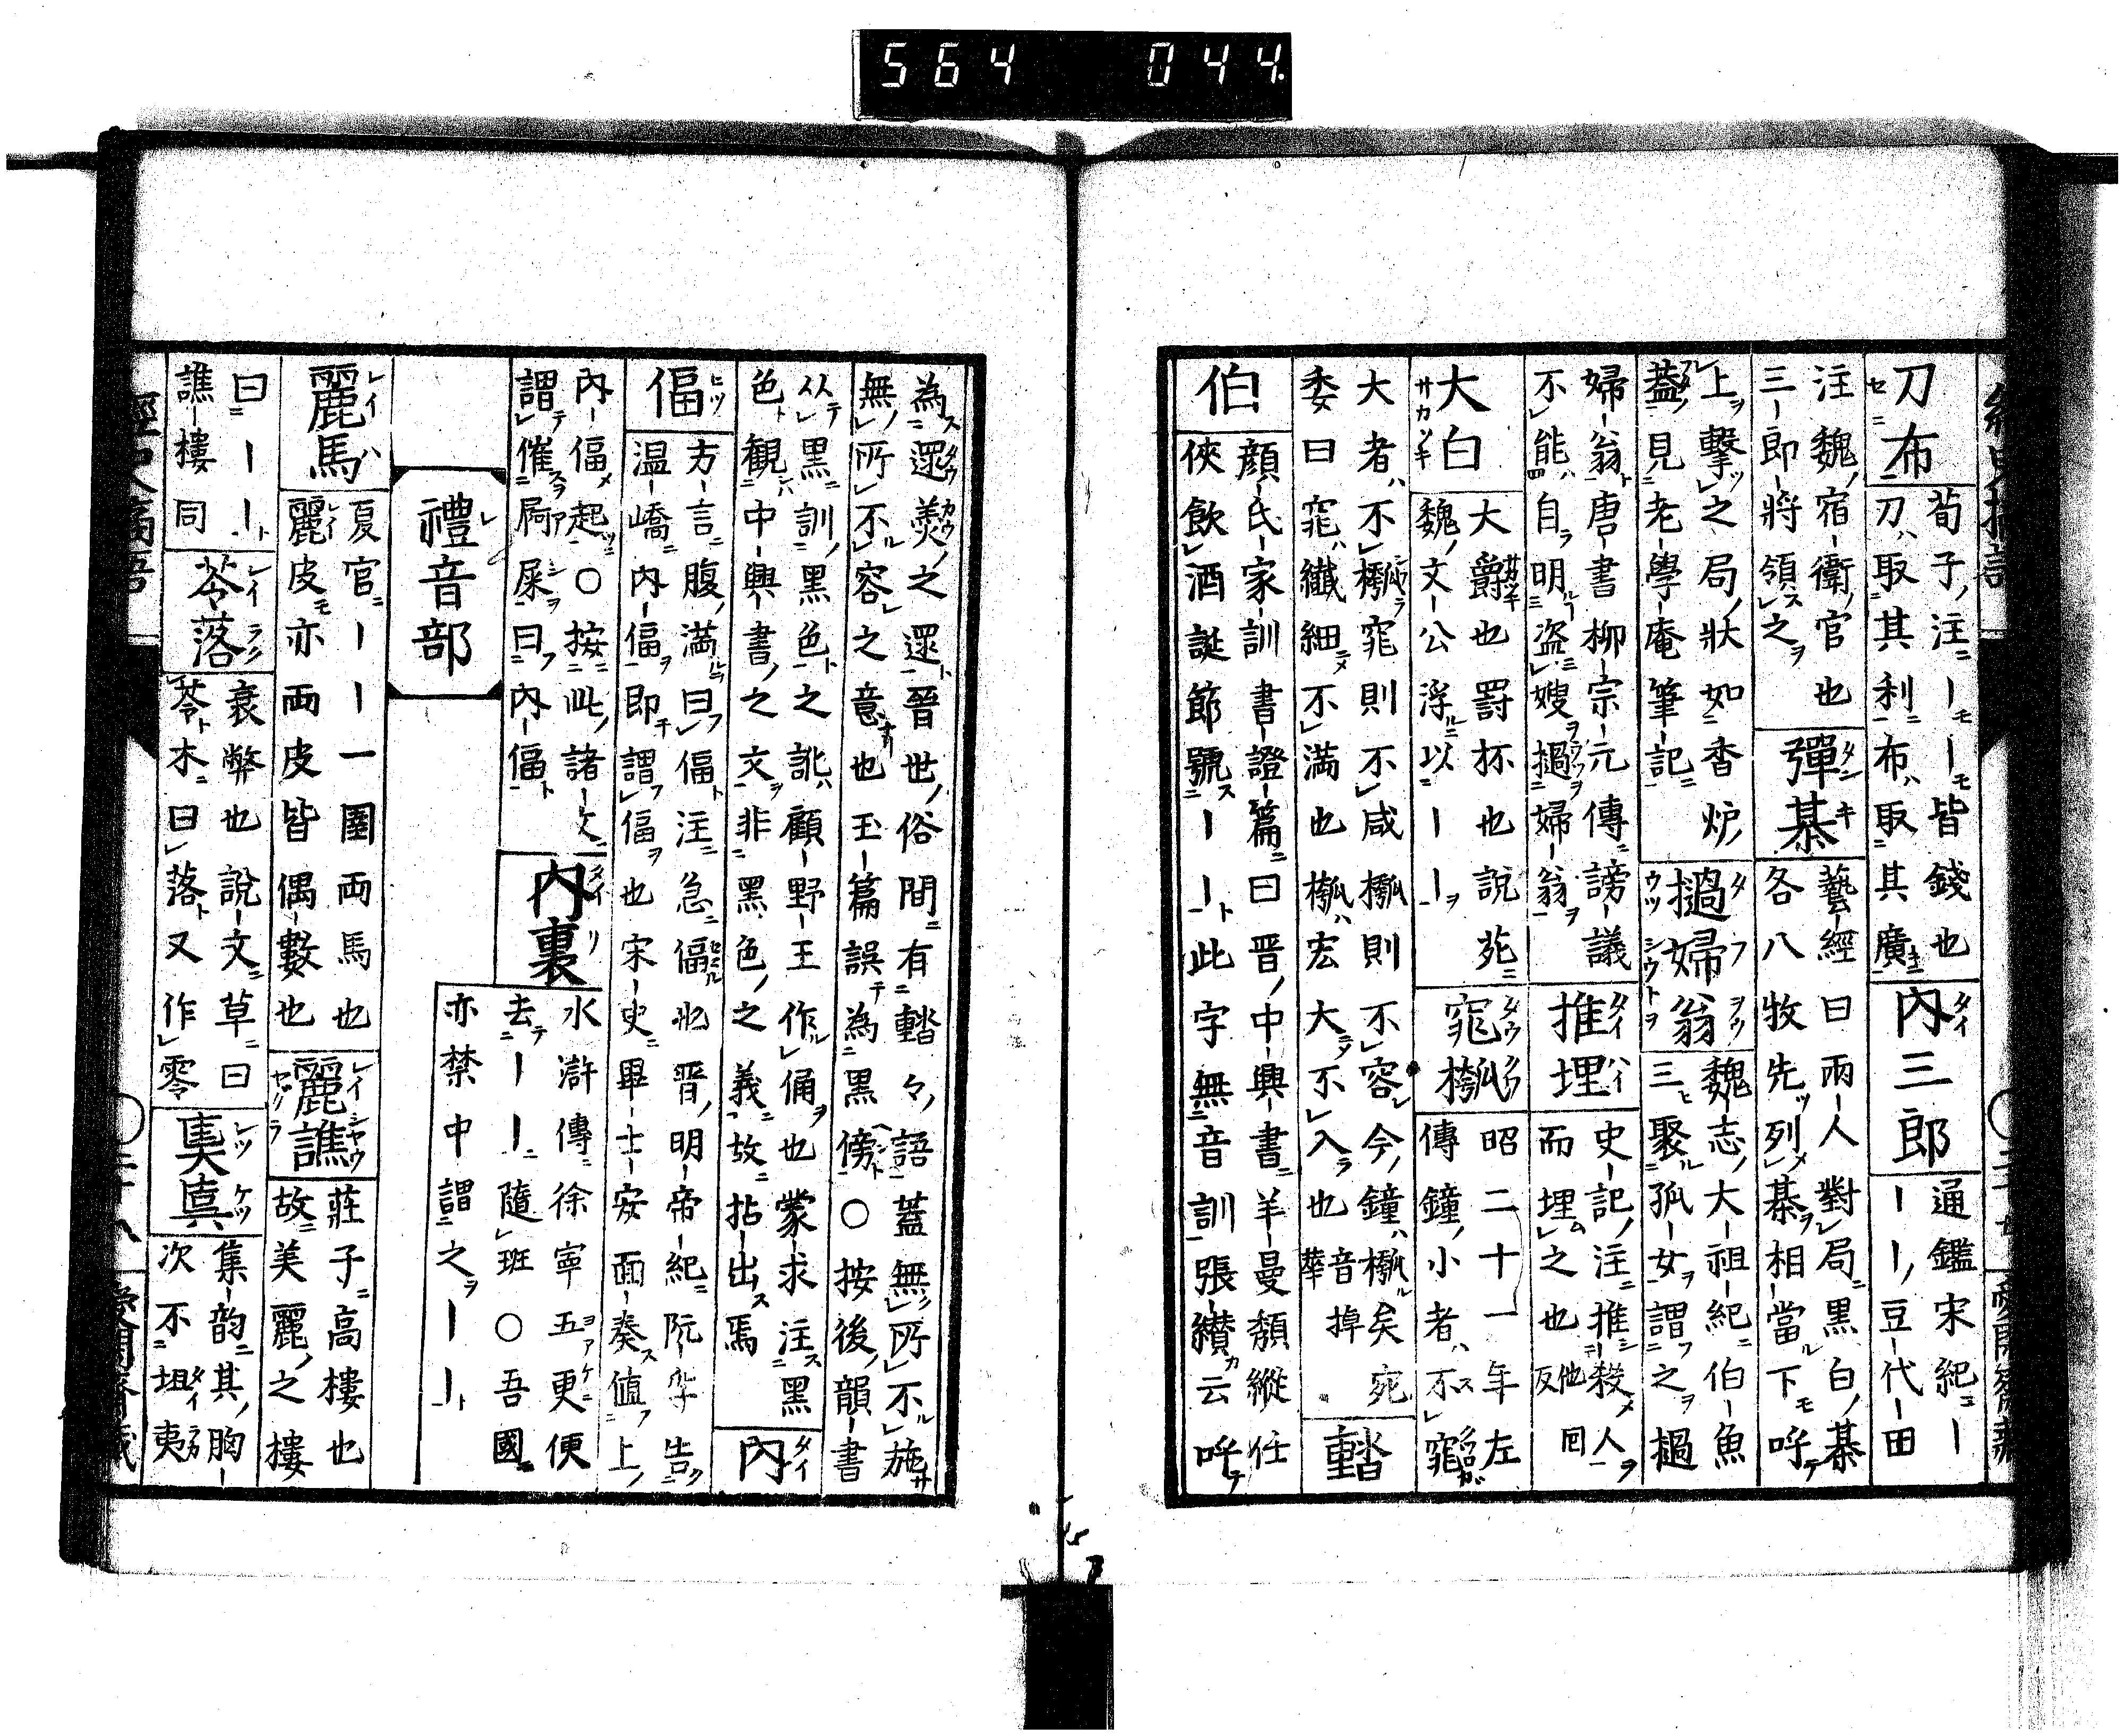 564 044
刀布
荀子注ーー皆錢也
刀取其利布取其廣
內三郎
通鑑宋紀ー
ーー豆代田
注魏宿衛官也
三郎將領之
彈棊
藝經曰兩人對局黑白棊
各八牧先列棊相當下呼
上擊之局狀如香炉
蓋見老學庵筆記
撾婦翁
魏志大祖紀伯魚
三聚孤女謂之撾
婦翁唐書柳宗元傳謗議
不能自明盗嫂撾婦翁
推埋
史記注推殺人
而埋之也
大白
大爵也罸杯也說苑
魏文公浮以ーー
窕槬
昭二十一年左
傳鐘小者不窕
大者不槬窕則不咸槬則不容今鐘槬矣
委曰窕纎細不満也槬宏大不入也
音掉
䵬
伯
顏氏家訓書證篇曰晋中興書羊曼頹縱任
俠飲酒誕節號ーー此字無音訓張纉云呼
為䍜羹之䍜晉世俗間有䵬々語蓋無所不施
無所不容之意也玉篇誤為黒傍○按後韻書
从黒訓黒色之訛顧野王作俑也蒙求注黑
色觀中興書之文非黑色之義故拈出焉
內
偪
方言腹満曰偪注急偪也晋明帝紀阮孚告
温嶠內偪即謂偪也宋史畢士安面奏値上
內偪起○按此諸文
謂催屙屎曰內偪
內裏
水滸傳徐寧五更便
去ーー隨班○吾國
亦禁中謂之ーー
禮音部
麗馬
夏官ーー一圉兩馬也
麗皮亦兩皮皆偶數也
麗譙
莊子高樓也
故美麗之樓
曰ーー
譙樓同
苓落
衰弊也說文草曰
苓木曰落又作零
奊㚖
集韵其胸
次不坦夷